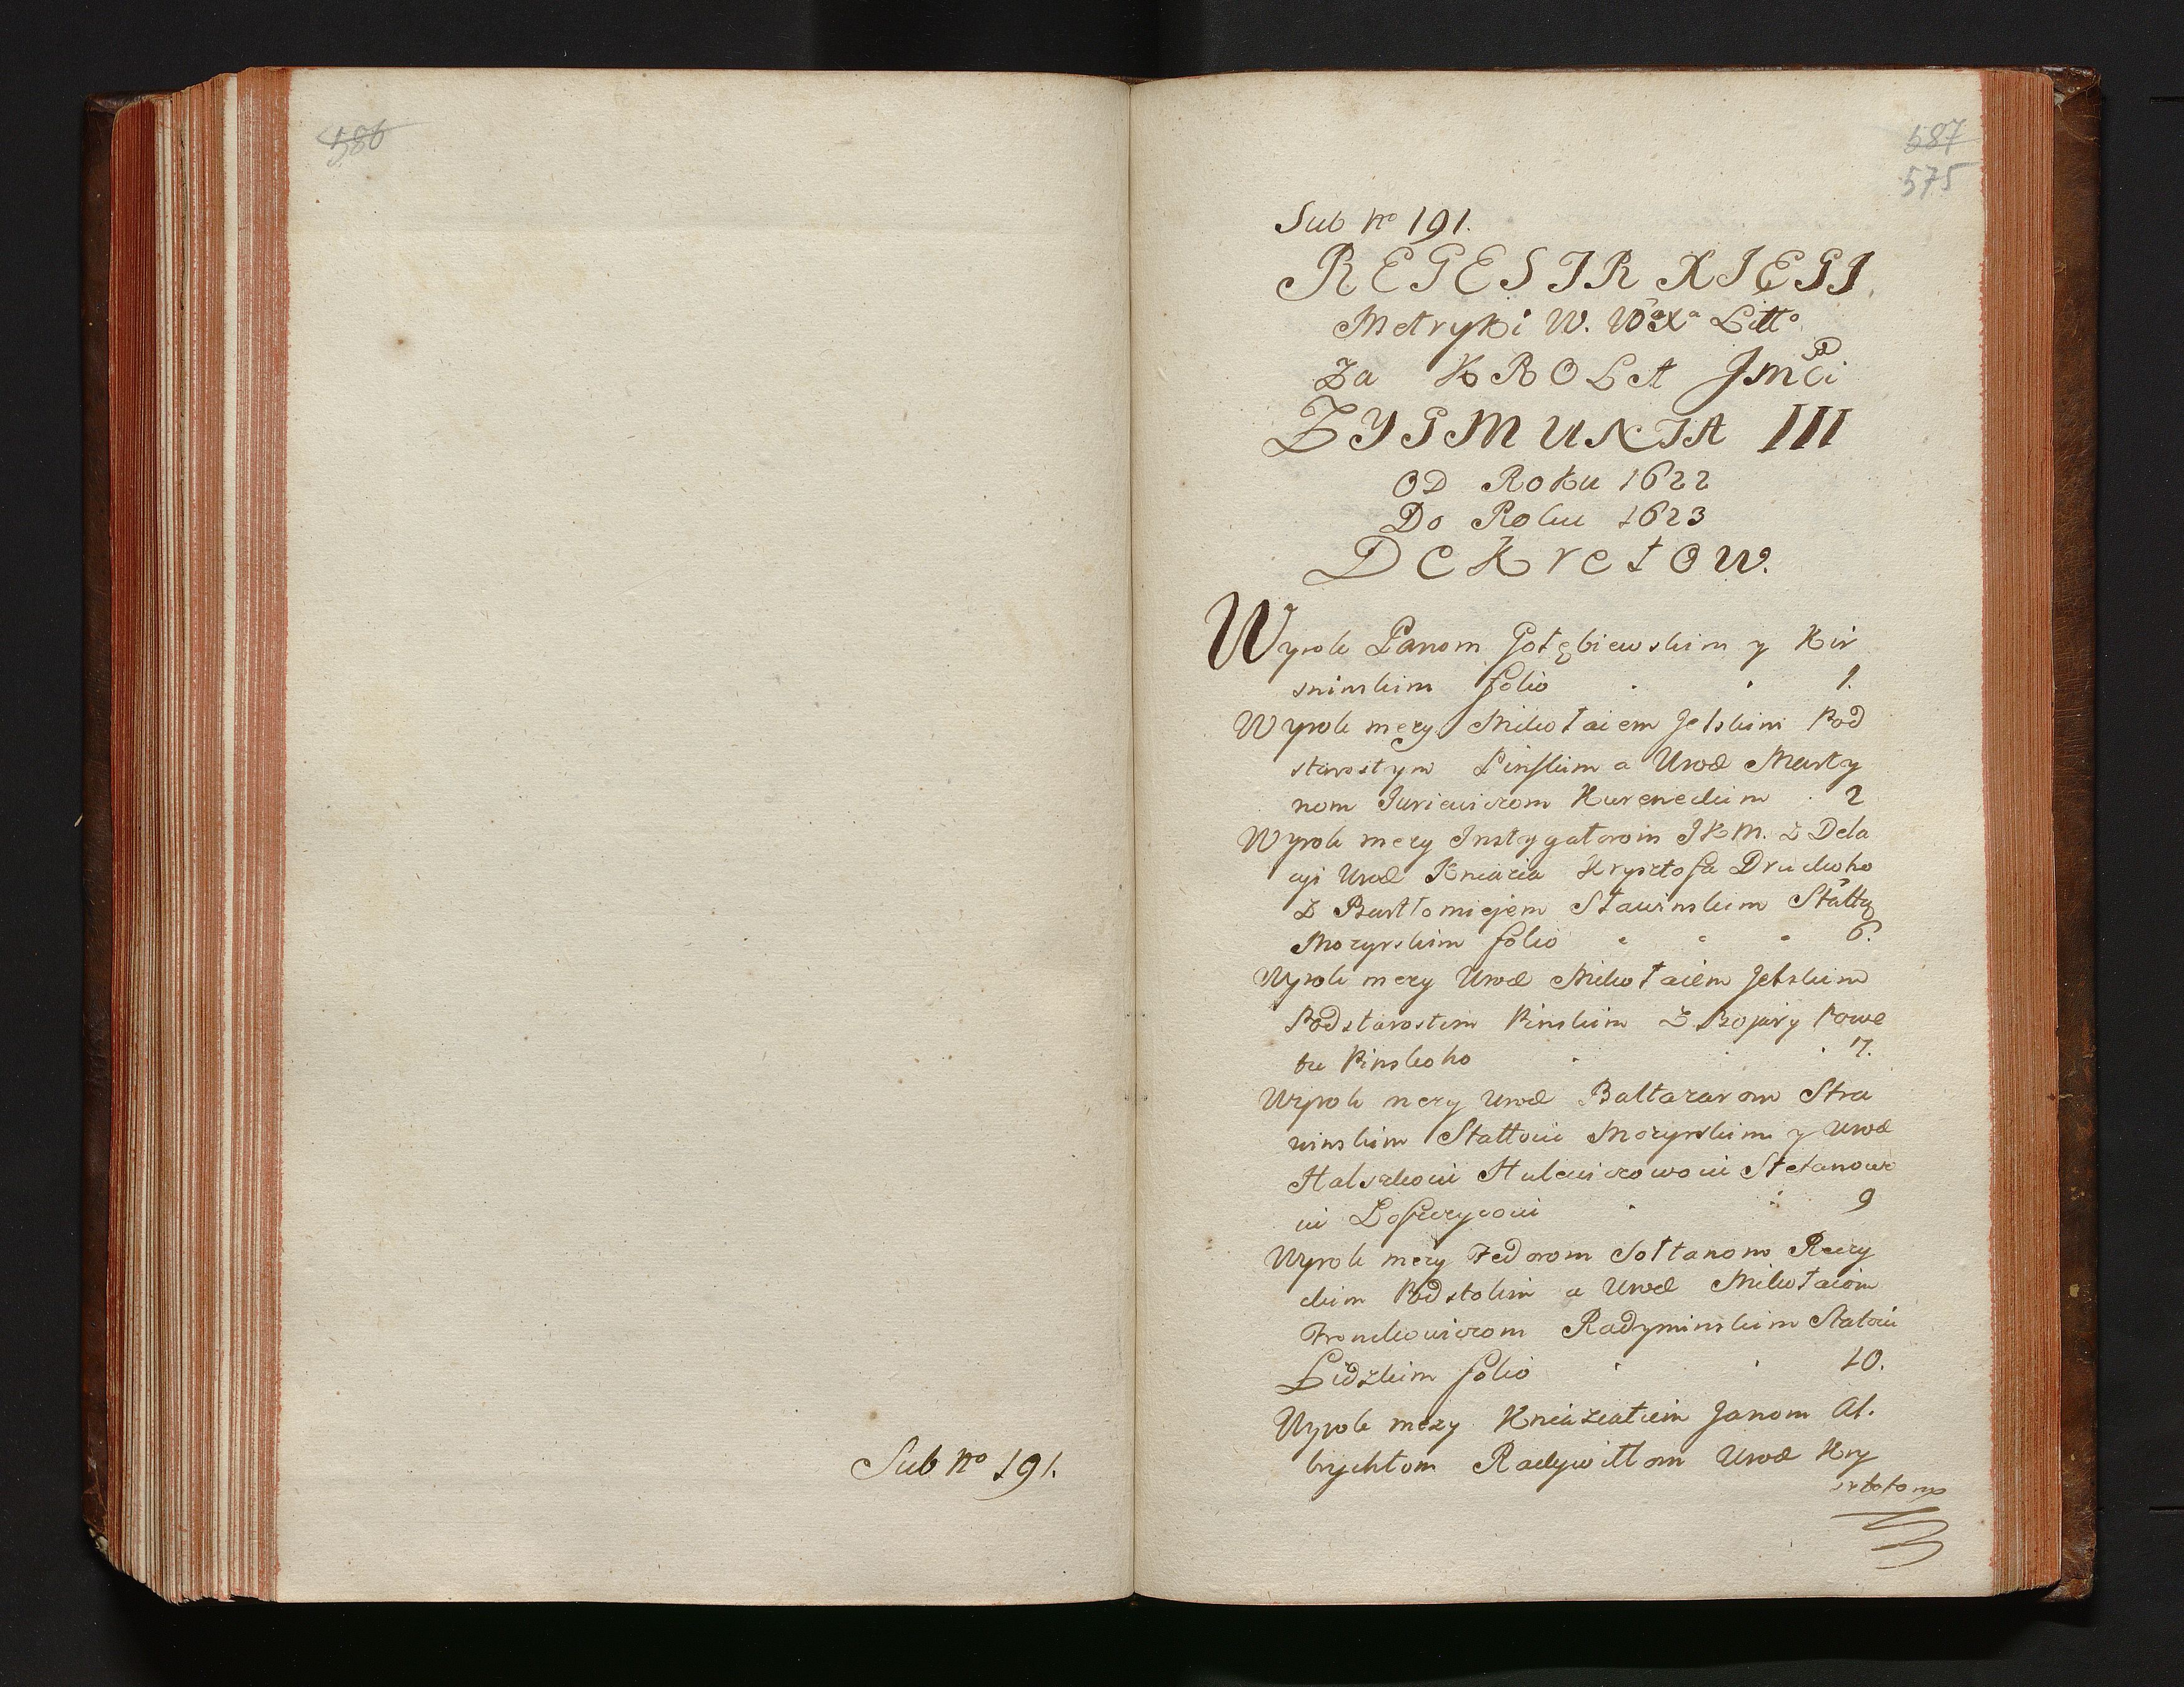 586
Sub no 191.
587
575
Sub no 191.
REGESTR XIĘGI
Metryki W. Xa Litto
Za KROLA Jmci
ZYGMUNTA III
OD Roku 1622
Do Roku 1623
Dekretow.
Wyrok Panom Gołębiewskim y Kir
sninskim folio 1.
Wyrok mezy Mikołaiem Jelskim Pod
starostym Pinskim a Urod Marty
nom Juriewiczom Kureneckim 2
Wyrok mezy Instygatorom JKM. Z Dela
cyi Urod Kniazia Krysztofa Druckoho
Z Bartłomiejem Stawinskim
Mozyrskim folio 6.
Wyrok mezy Urod Mikołaiem Jelskim
Podstarostim Pinskim Z Bojary Powe
tu Pinskoho 7.
Wyrok mezy Urod Baltazarom Stra
winskim Mozyrskim y Urod
Halszkoiu
iu
9
Wyrok mezy Fedorom Sołtanom Reczy
ckim Podstolim a Urod Mikołaiom
Fronckowiczom Radyminskim
Lidzkim folio 10.
Wyrok mezy Kniaziatiem Janom Al.
brychtom Radywiłłom Urod Kry
sztofom